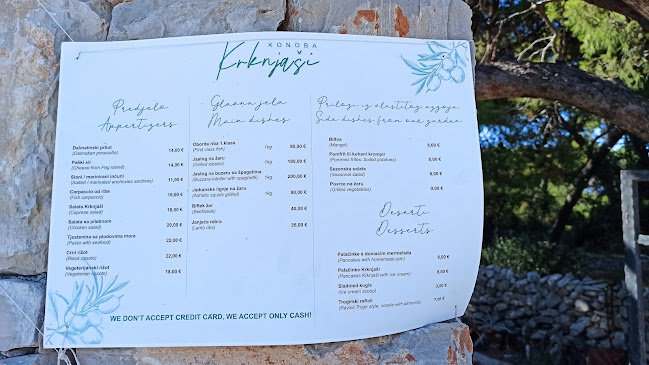 KONOBA
Krknjaši
Predjelo
Appertizers
Dalmatinski pršut 14,00 €
(Dalmatian prosciutto)
Paški sir 14,00 €
(Cheese from Pag island)
Slani / marinirani inćuni 11,00 €
(Salted / marinated anchovies sardines)
Carpaccio od ribe 16,00 €
(Fish carpaccio)
Salata Krknjaši 16,50 €
(Caprese salad)
Salata sa piletinom 20,00 €
(Chicken salad)
Tjestenina sa plodovima mora 22,00 €
(Pasta with seafood)
Crni rižot 22,00 €
(Black risotto)
Vegeterijanski rižot 18,00 €
(Vegeterian risotto)
Glavna jela
Main dishes
Oborita riba 1.klasa 1kg 90,00 €
(First class fish)
Jastog na žaru 1kg 180,00 €
(Grilled lobster)
Jastog na buzaru sa špagetima 1kg 200,00 €
(Buzzara lobster with spaghetti)
Jadranske lignje na žaru 1kg 80,00 €
(Adriatic squids grilled)
Biftek žar 40,00 €
(Beefsteak)
Janjeća rebra 35,00 €
(Lamb ribs)
Prilozi iz vlastitog uzgoja
Side dishes from our garden
Blitva 6,00 €
(Mangel)
Pomfrit ili kuhani krumpir 6,00 €
(Pommes frites, boiled potatoes)
Sezonska salata 6,00 €
(Seasonal salad)
Povrće na žaru 9,00 €
(Grilled vegetables)
Deserti
Desserts
Palačinke s domaćim marmelada 8,00 €
(Pancakes with homemade jam)
Palačinke Krknjaši 9,00 €
(Pancakes Krknjaši with ice cream)
Sladoled kugla 3,00 €
(Ice cream scoop)
Trogirski rafioli 7,00 €
(Ravioli Trogir style, cookie with almonds)
WE DON'T ACCEPT CREDIT CARD, WE ACCEPT ONLY CASH!